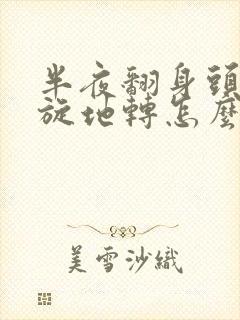 半夜翻身頭
旋地轉怎麼
美雪沙織